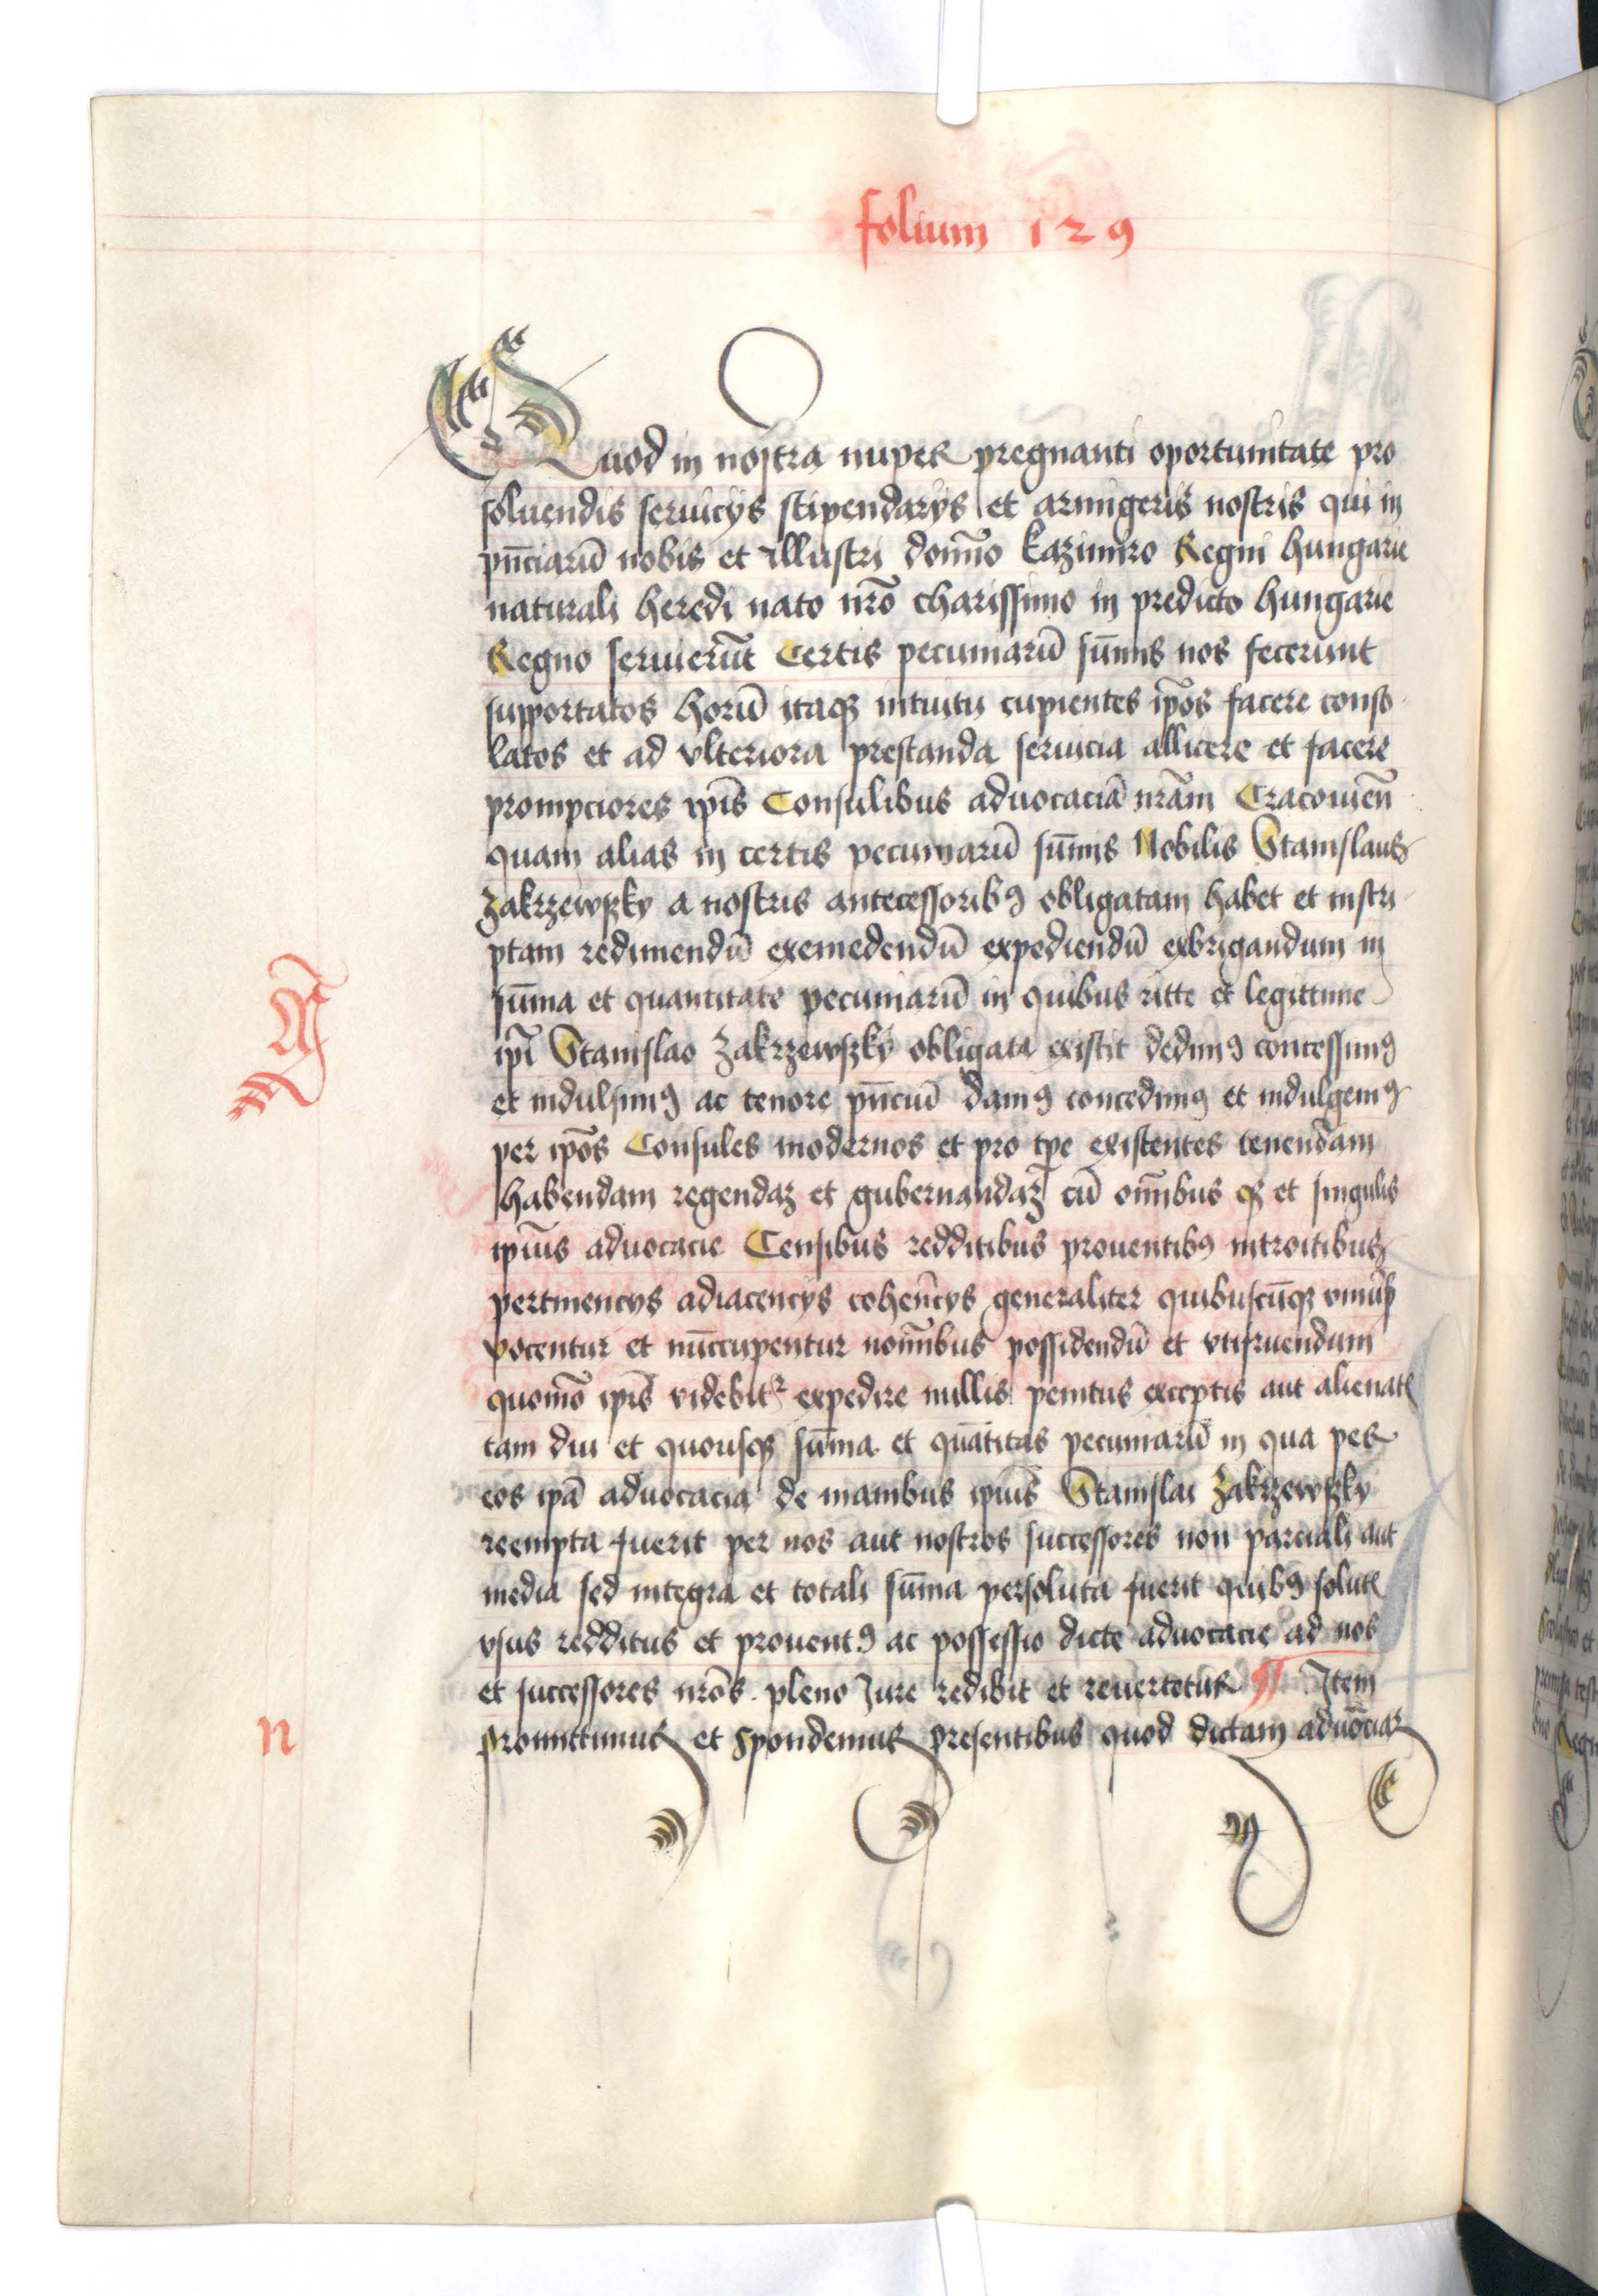 folium 129
Quod in nostra nuper pregnanti oportunitate pro
soluendis seruicys stipendarys et armigeris nostris qui in
pn̄ciarū nobis et illustri domīo kazimiro Regni hungarie
naturali heredi nato nr̄o charissimo in predicto hungarie
Regno seruierūt Certis pecuniarū sūmis nos fecerunt
supportatos horū itaqꝫ intuitu cupientes ip̄os facere conso
latos et ad vlteriora prestanda seruicia allicere et facere
prompciores ip̄is Consulibus aduocaciā nr̄am Cracouien̄
quam alias in certis pecuniarū sūmis Nobilis Stanislaus
Zakrzewsky a nostris antecessoribꝰ obligatam habet et inscri
ptam redimendū eximedendū expediendū exbrigandum in
sūma et quantitate pecuniarū in quibus ritte et legittime
ip̄i Stanislao Zakrzewsky obligata existit dedimꝰ concessimꝰ
et indulsimꝰ ac tenore pn̄ciū damꝰ concedimꝰ et indulgemꝰ
per ip̄os Consules modernos et pro tp̄e existentes tenendam
habendam regendaꝫ et gubernandaꝫ cū om̄ibus qꝫ et singulis
ip̄ius aduocacie Censibus redditibus prouentibꝰ introitibus
pertinencys adiacencys coheren̄cys generaliter quibuscūqꝫ
vocentur et nūccupentur nomībus possidendū et vtifruendum
quomō ip̄is videbitꝛ expedire nullis penitus exceptis aut alienatꝭ
tam diu et quousqꝫ sūma et quātitas pecuniarū in qua per
eos ip̄a aduocacia de manibus ip̄ius Stanislai Zakrzewsky
reempta fuerit per nos aut nostros successores non parciali aut
media sed integra et totali sūma persoluta fuerit quibꝰ solutꝭ
vsus redditus et prouentꝰ ac possessio dicte aduocacie ad nos
et successores nr̄os pleno Jure redibit et reuertetur ¶ Item
promittimus et spondemus presentibus quod dictam aduōciaꝫ
n